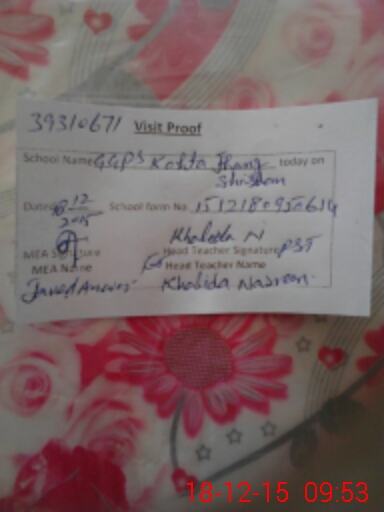 39310671 Visit Proof
School Name GGPS Kohta Jhang today on
Dated 18 12 School form No 151218095061
2015
Khaleda N
MEA Signature Head Teacher Signature PST
MEA Name Head Teacher Name
Javed Anwer Khalida Nasreen
18-12-15 09:53